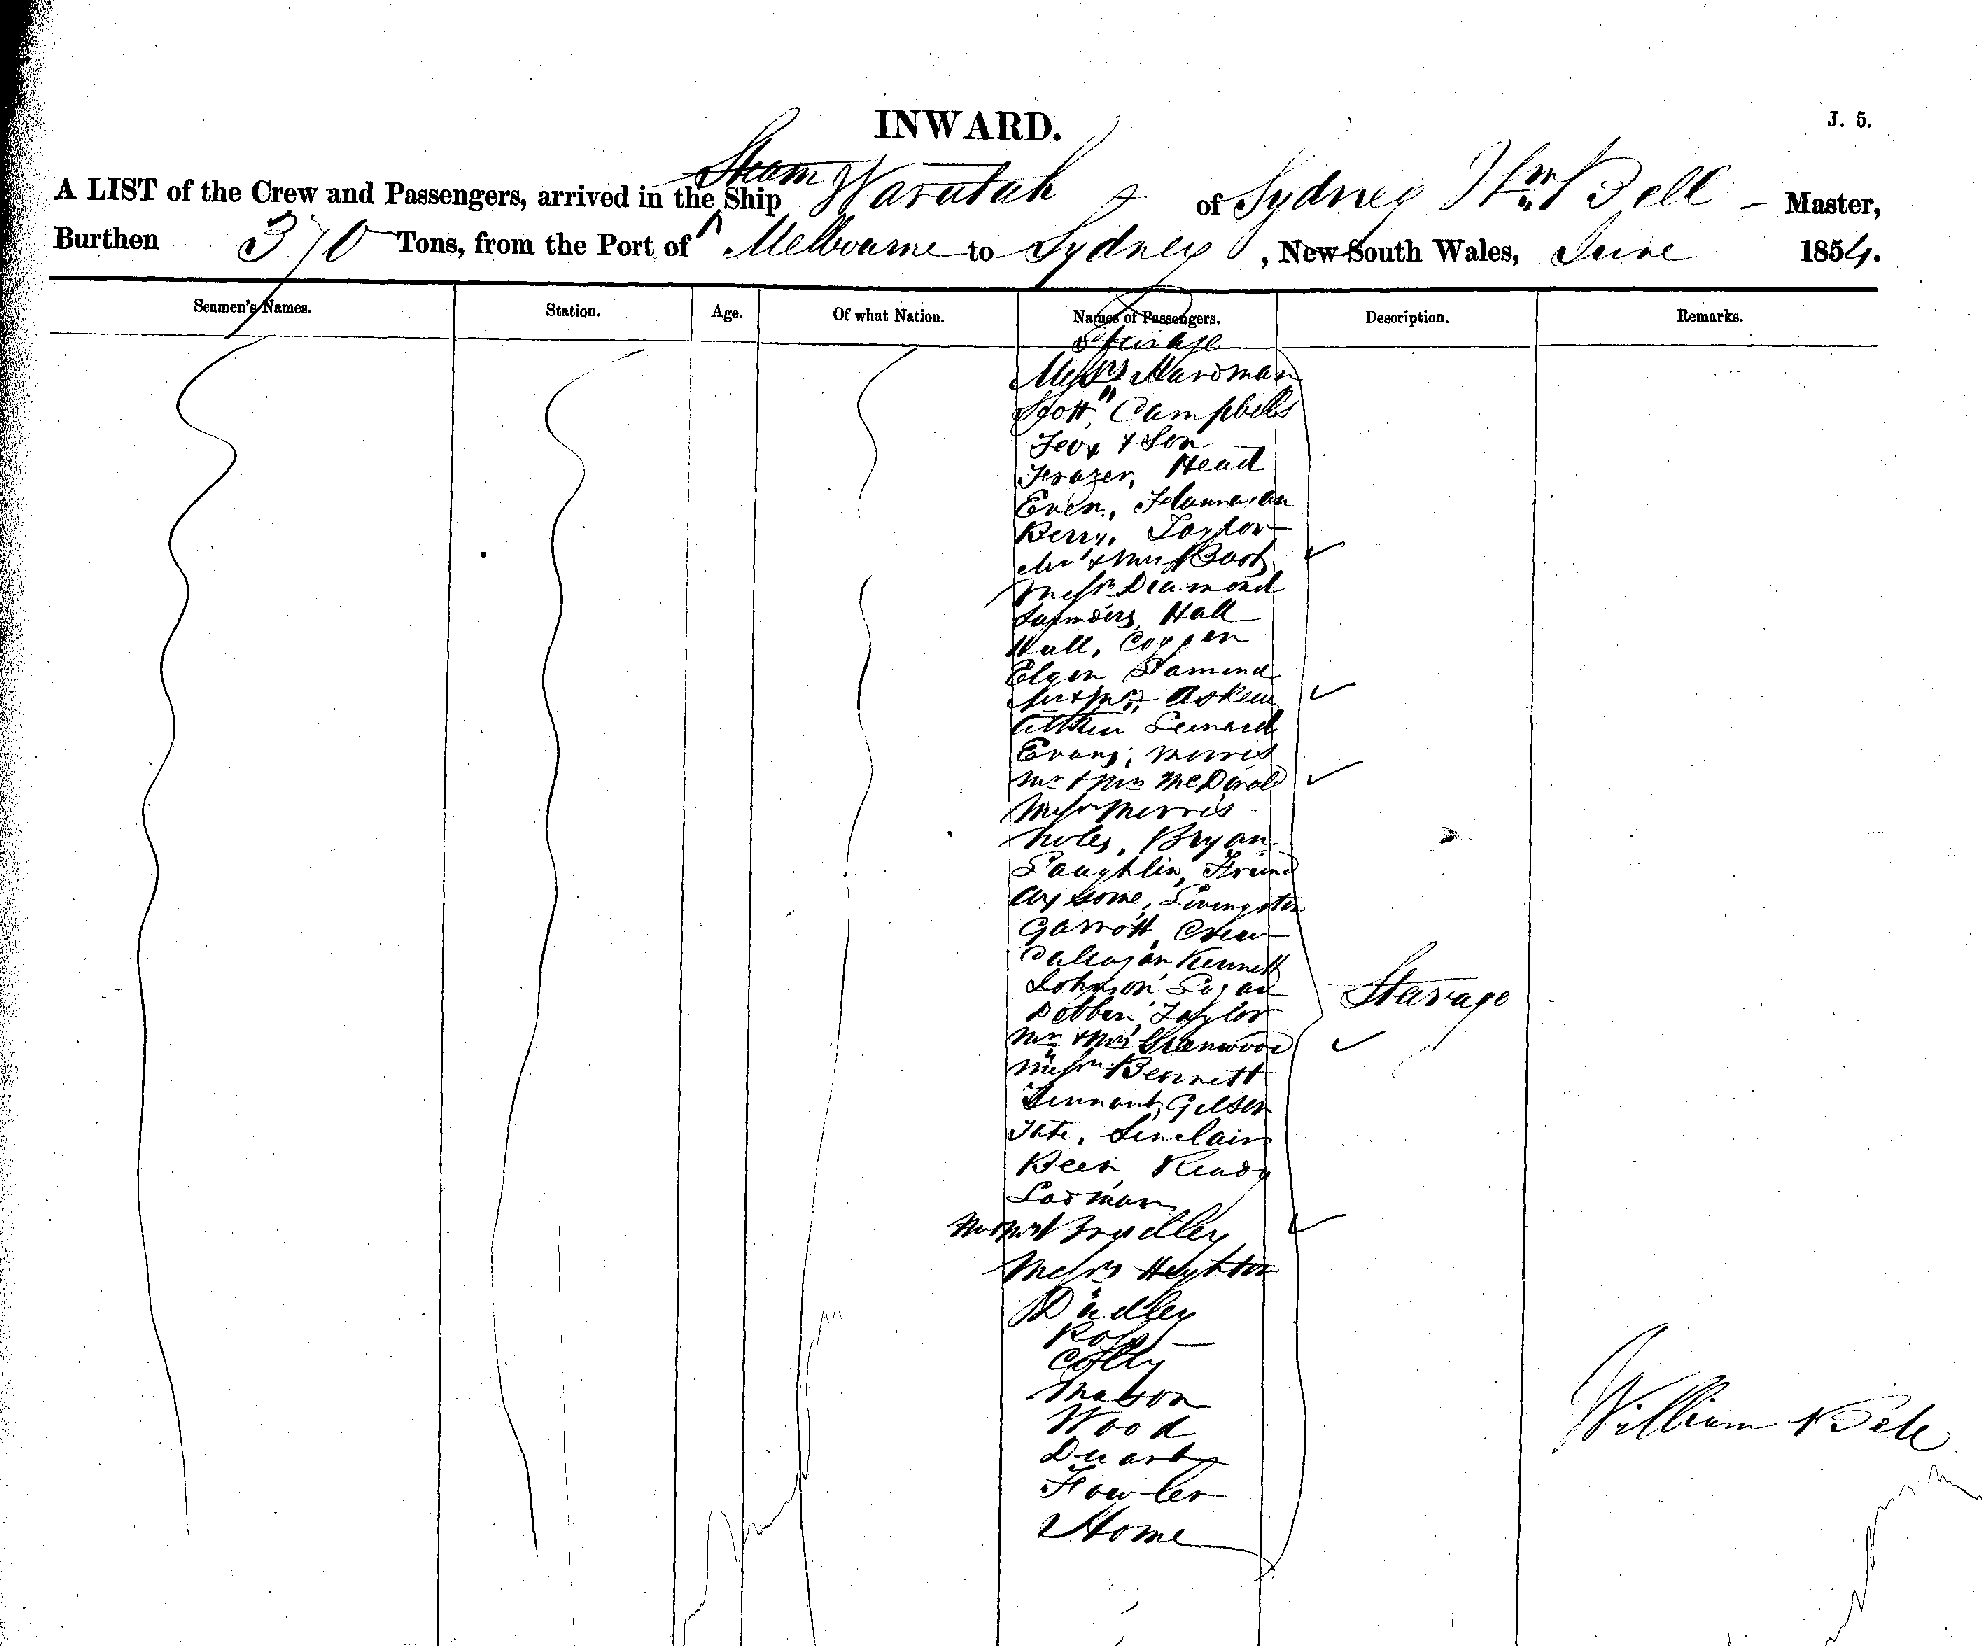 INWARD.
J. 5.
A LIST of the Crew and Passengers, arrived in the Steam Ship Waratah of Sydney Wm Bell Master,
Burthen 370 Tons, from the Port of Melbourne to Sydney, New South Wales, June 1854.
Seamen's Names. Station. Age. Of what Nation. Names of Passengers. Description. Remarks.
Messrs Hardman
Scott, Campbells
& Son
Frazer, Head
Even,
Berry, Taylor
Mr & Mrs
Messrs Diamond
Saunders, Hall
Wall, Coppen
Elgin
Mr & Mrs Askew
Evans, Morris
Mr & Mrs McDonald
Messrs Morris
Noles, Bryan
Laughlin, Friend
Livingston
Garrott, Crew
Callagan Kennett
Johnson Logan
Dobbin, Taylor
Steerage
Mr & Mrs Greenwood
Messrs Bennett
Tennant, Gilson
Tate, Sinclair
Ready
Larman
Mr & Mrs Bradley
Messrs Heighton
Dudley
Ross
Mason
Wood
William Bell
Fowler
Home